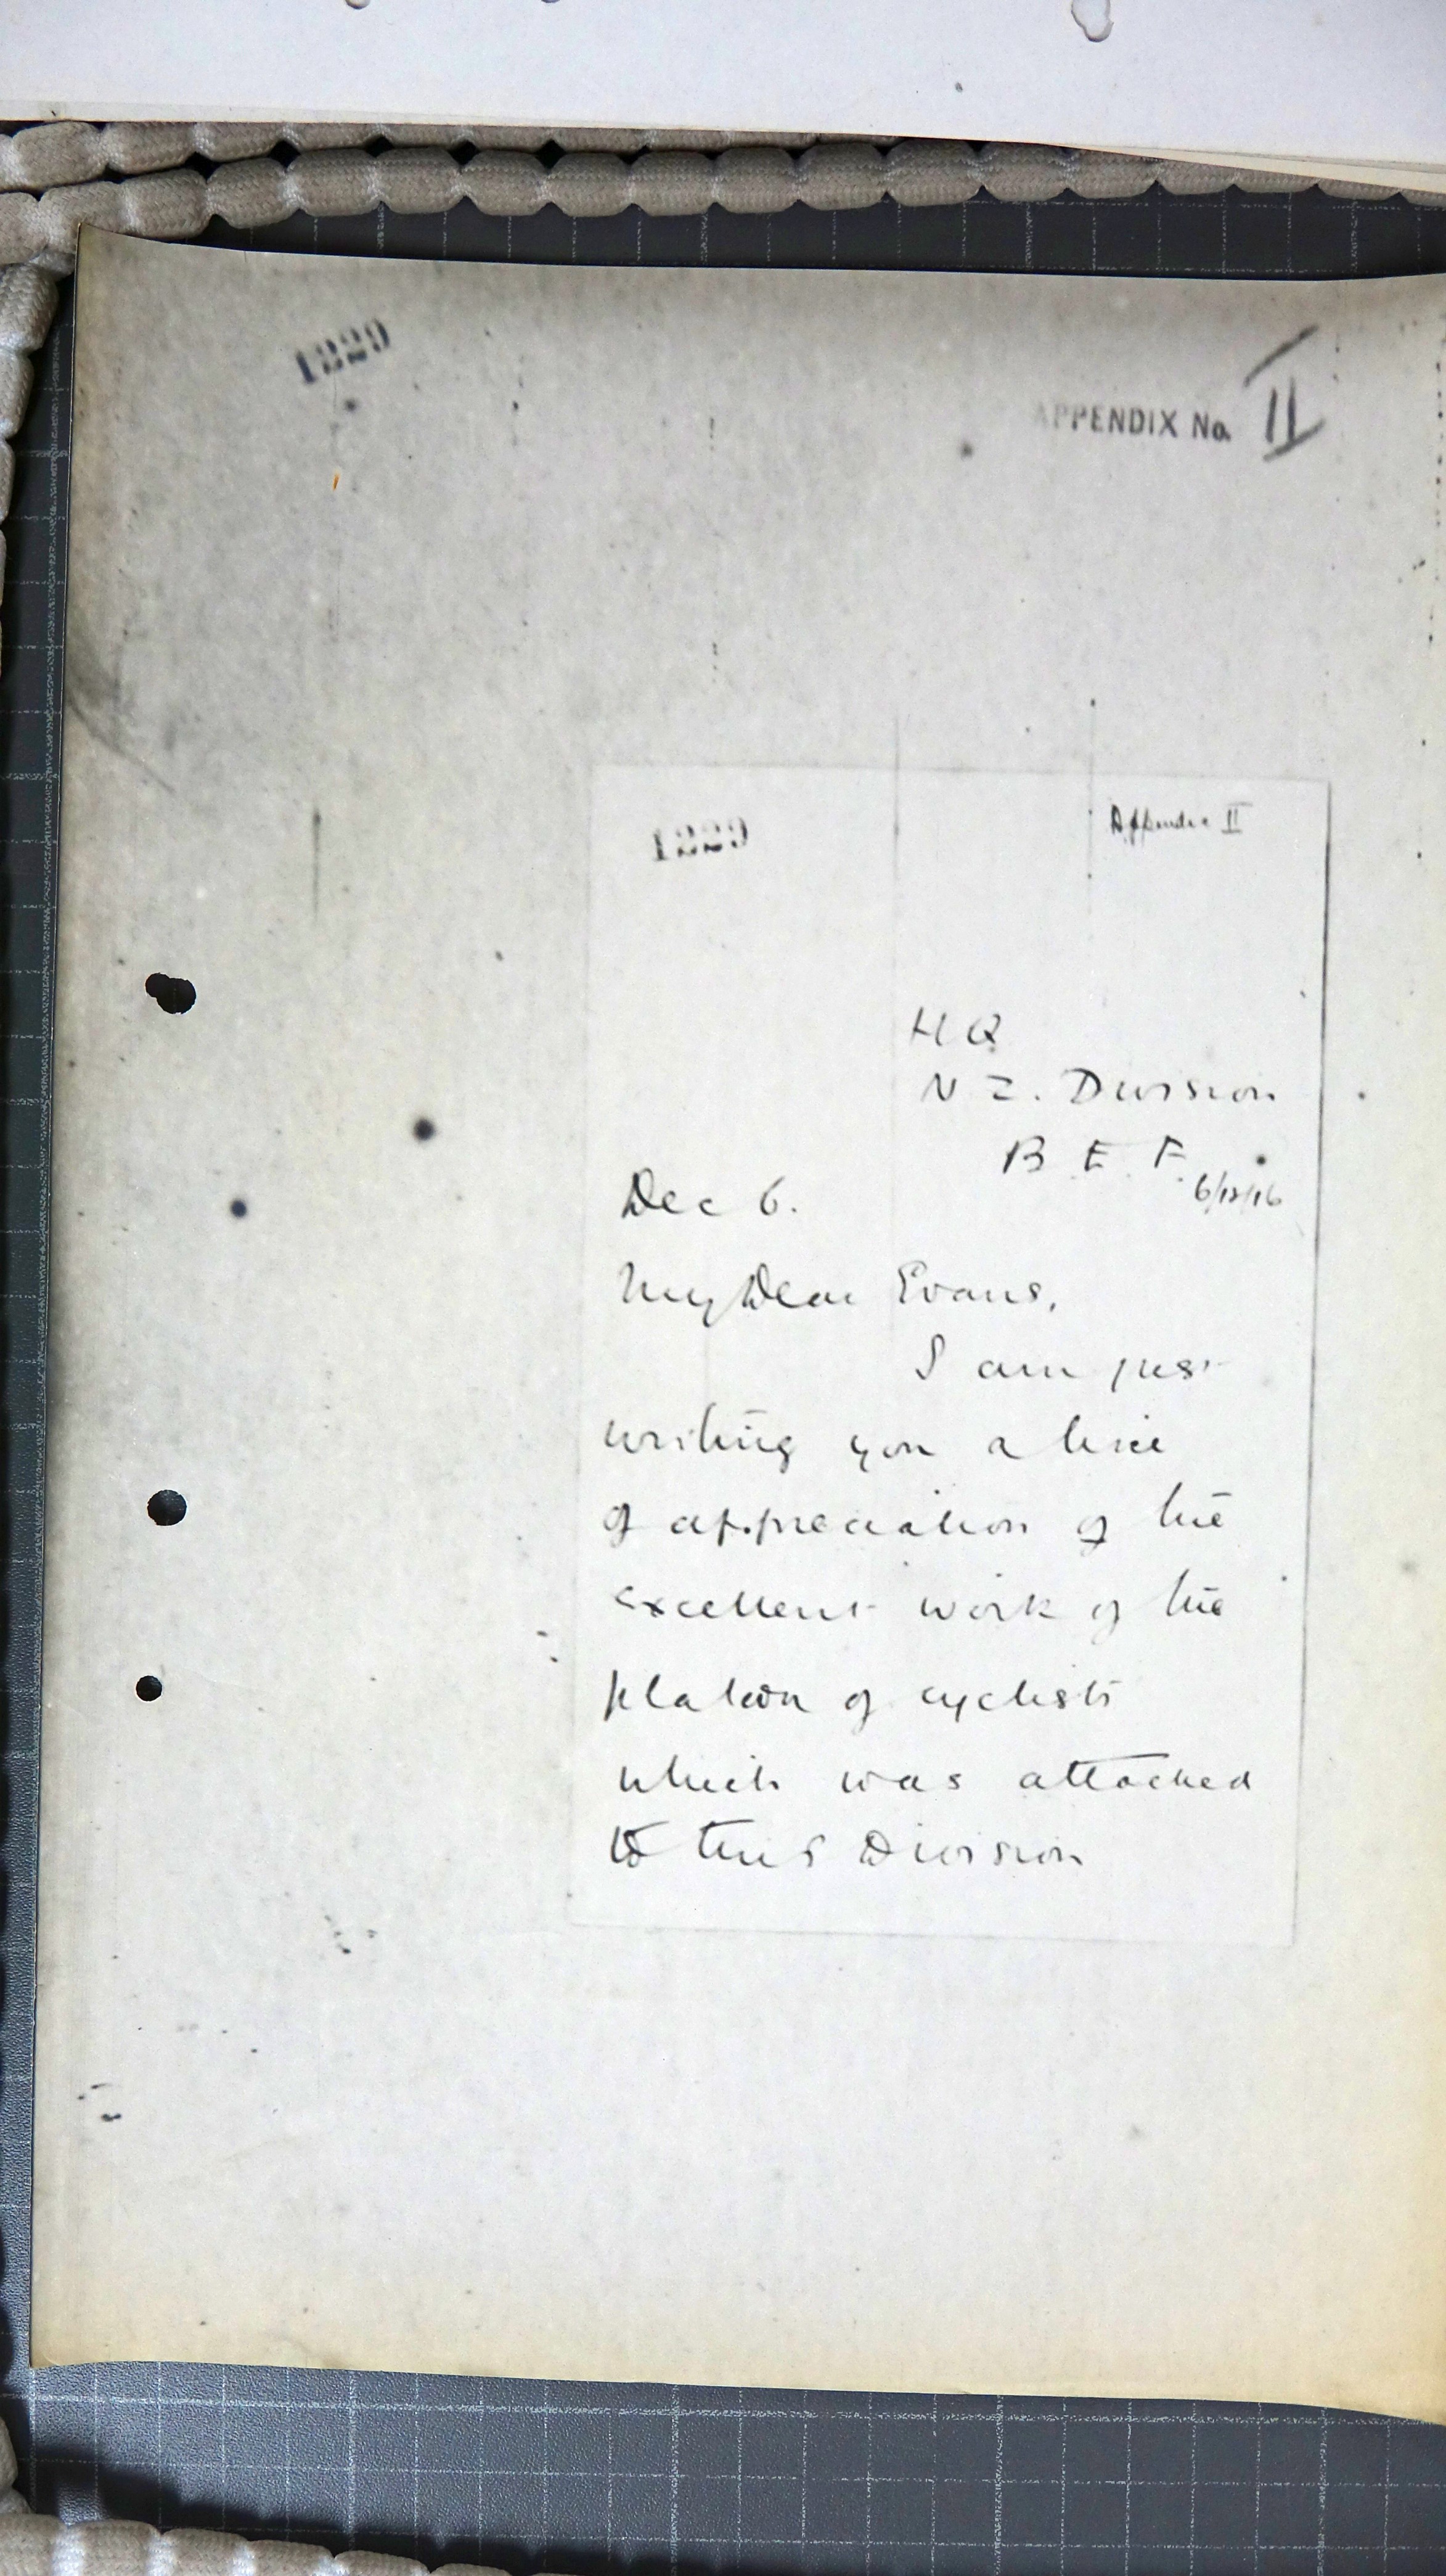 1229
APPENDIX No. II
1229
Appendix II
H Q
N Z. Division
B. E. F.
6/12/16
Dec 6.
My Dear Evans,
I am just
writing you a line
of appreciation of the
excellent work of the
platoon of cyclists
which was attached
to this Division